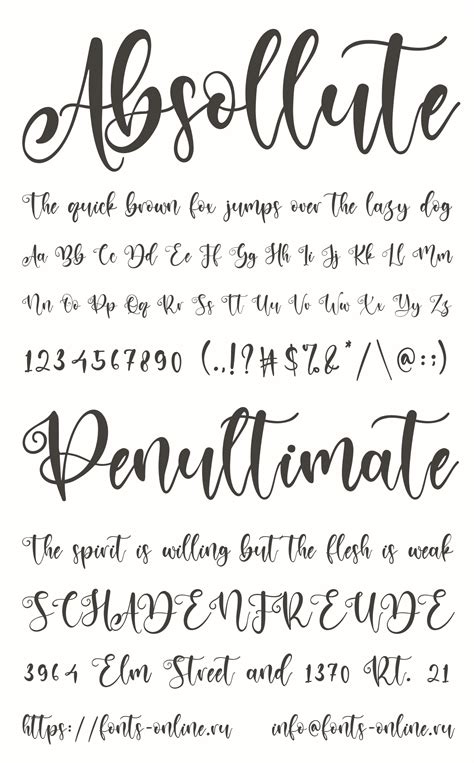 Absollute
The quick brown fox jumps over the lazy dog
Aa Bb Cc Dd Ee Ff Gg Hh Ii Jj Kk Ll Mm
Nn Oo Pp Qq Rr Ss Tt Uu Vv Ww Xx Yy Zz
1234567890 (.,!?#$%&*/\@:;)
Penultimate
The spirit is willing but the flesh is weak
SCHADENFREUDE
3964 Elm Street and 1370 Rt. 21
https://fonts-online.ru info@fonts-online.ru